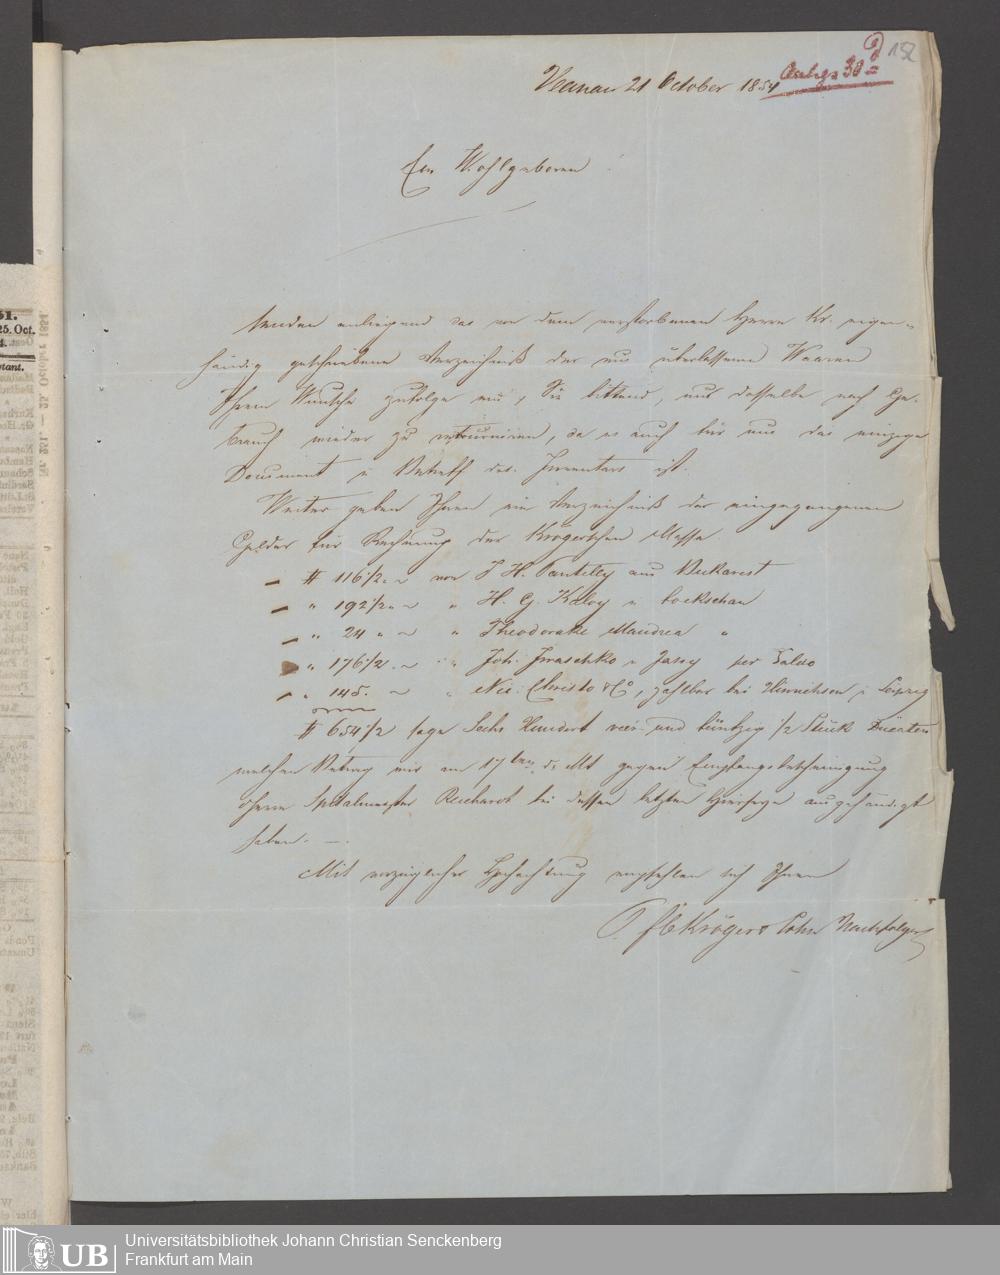 Anlage 30 d
152
Hanau 21 October 1854
Euer Wohlgeboren
senden anliegend das von dem verstorbenen Herrn Kr. eigen-
händig geschriebene Verzeichniß der uns überlassenen Waaren
Ihrem Wunsche zufolge ein, Sie bittend, uns dasselbe nach Ge-
brauch wieder zu retourniren, da es auch für uns das einzige
Document in Betreff des Inventars ist.
Weiter geben Ihnen ein Verzeichniß der eingegangenen
Gelder für Rechnung der Krögerschen Massa
# 116 1/2 von J H. aus Bukarest
" 192 1/2 " H. G. "
" 24 " " Theodorake Mandrea "
" 176 1/2 " Joh. Jraschko " Jassy per Saldo
" 145. " Nic: Christo & Co, zahlbar bei Hinrichsen i Leipzig
# 654 1/2 sage Sechs Hundert vier und fünfzig 1/2 Stück Ducaten
welchen Betrag wir am 17ten d. Mt gegen Empfangsbescheinigung
Herrn Spitalmeister Reichardt bei dessen letzten Hiersein ausgehändigt
haben. —.
Mit vorzüglicher Hochachtung empfehlen sich Ihnen
Kröger Sohn Nachfolger
51.
25. Oct.
Nr. 251. — 25. October 1854.
UB
Universitätsbibliothek Johann Christian Senckenberg
Frankfurt am Main